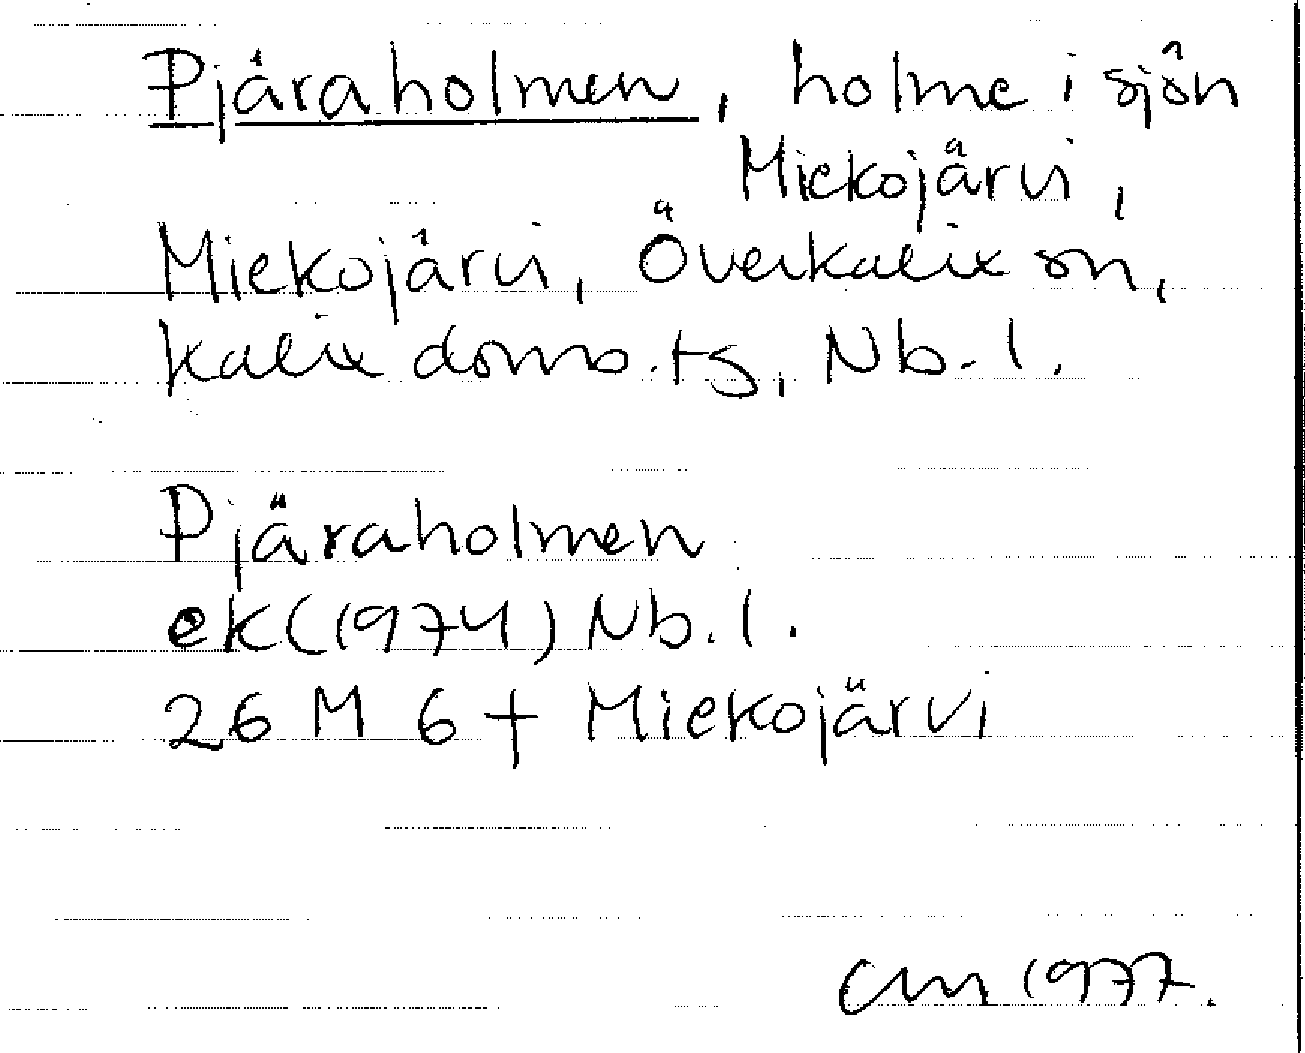 Pjäraholmen, holme i sjön
Miekojärvi,
Miekojärvi, Överkalix sn,
Kalix doms.tg, Nb.l.
Pjäraholmen
ek (1974) Nb.l.
26 M 6 f Miekojärvi
CM 1977.